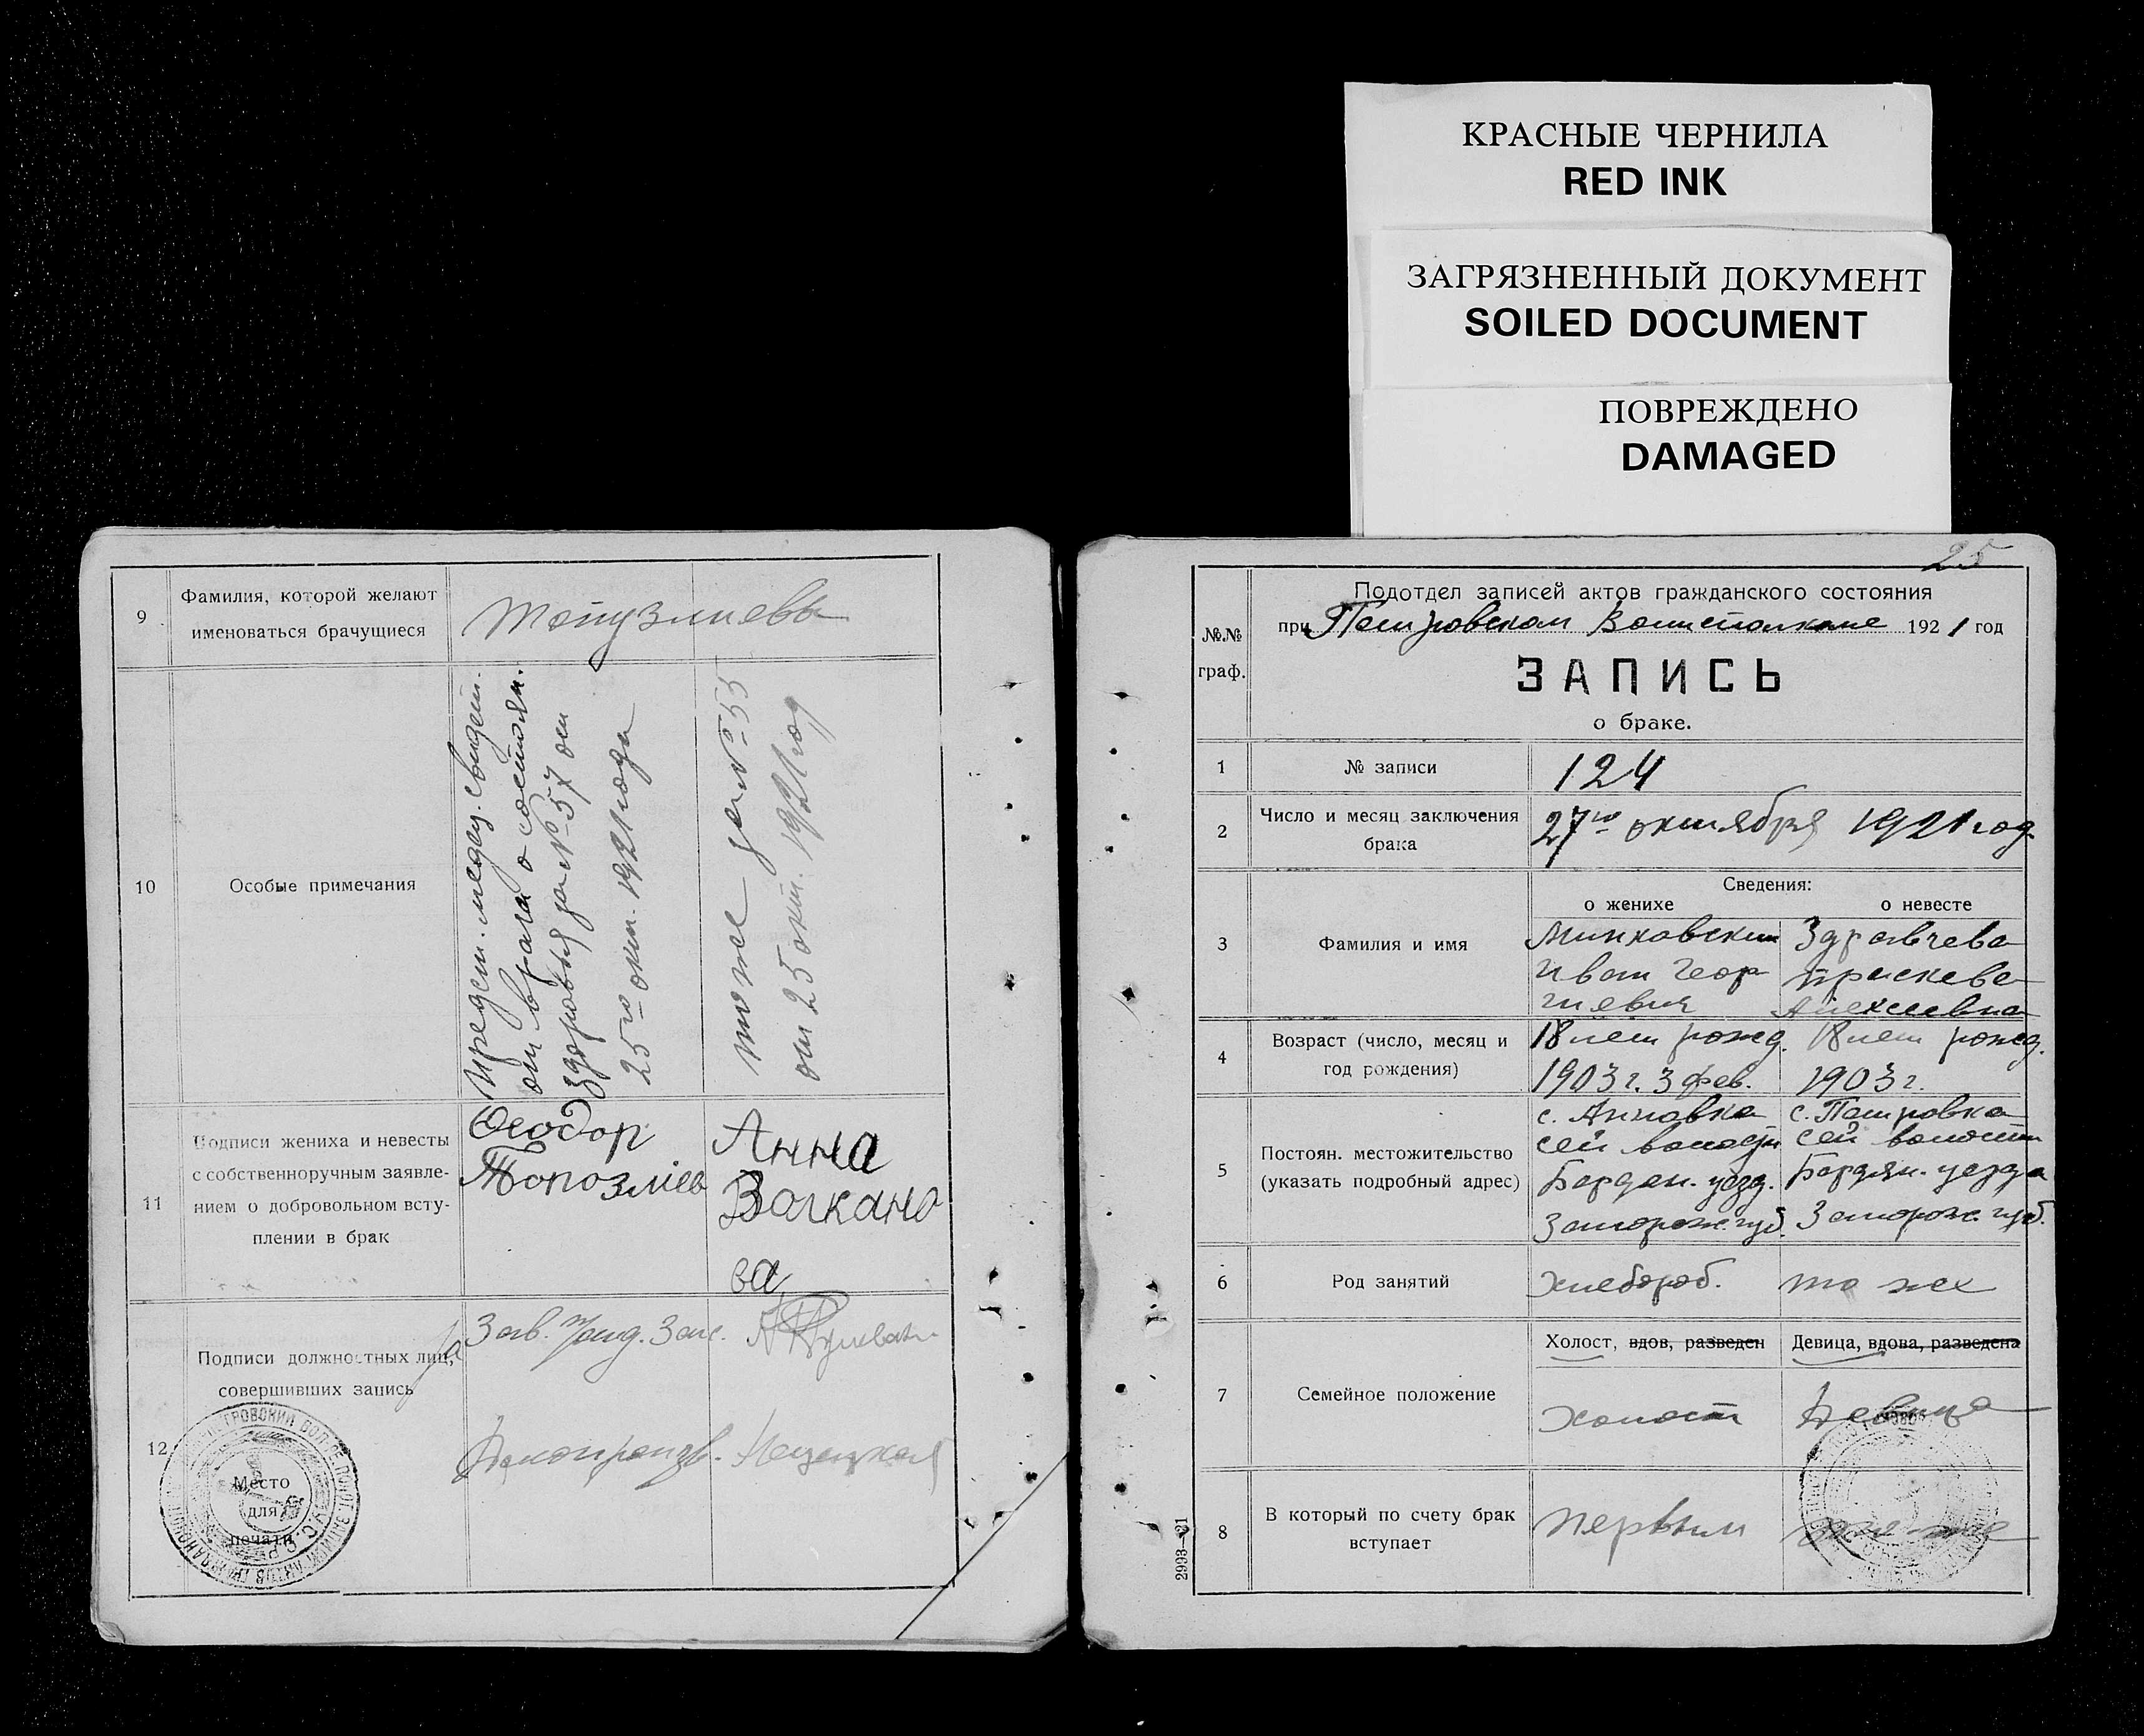 КРАСНЫЕ ЧЕРНИЛА
RED INK
ЗАГРЯЗНЕННЫЙ ДОКУМЕНТ
SOILED DOCUMENT
ПОВРЕЖДЕНО
DAMAGED
9
Фамилия, которой желают
именоваться брачущиеся
10
Особые примечания
Предст. медиц. свидет.
от врача о состоян.
здоровья за № 57 от
25го окт. 1921 года
тоже за № 55
от 25 окт. 1921 год
11
Подписи жениха и невесты
с собственноручным заявле-
нием о добровольном всту-
плении в брак
Феодор
Топозлiев
Анна
Волкано
ва
12
Подписи должностных лиц,
совершивших запись
Зав. Запис.
Делопроизв.
Место
для
печати
25
№№
граф.
Подотдел записей актов гражданского состояния
при Петровском Волисполкоме 1921 год
ЗАПИСЬ
о браке.
1
№ записи
124
2
Число и месяц заключения
брака
27го октября 1921 год
Сведения:
о женихе
о невесте
3
Фамилия и имя
Минковский
Иван Геор
гиевич
Здравчева
Праскева
Алексеевна
4
Возраст (число, месяц и
год рождения)
18 лет рожд.
1903 г. 3 фев.
18 лет рожд.
1903 г.
5
Постоян. местожительство
(указать подробный адрес)
с. Анновка
сей волости
Бердян. уезд.
Запорож. губ.
с. Петровка
сей волости
Бердян. уезда
Запорож. губ.
6
Род занятий
Хлебороб.
то же
7
Семейное положение
Холост, вдов, разведен
Девица, вдова, разведена
холост
Девица
8
В который по счету брак
вступает
первым
то-же
2993—21